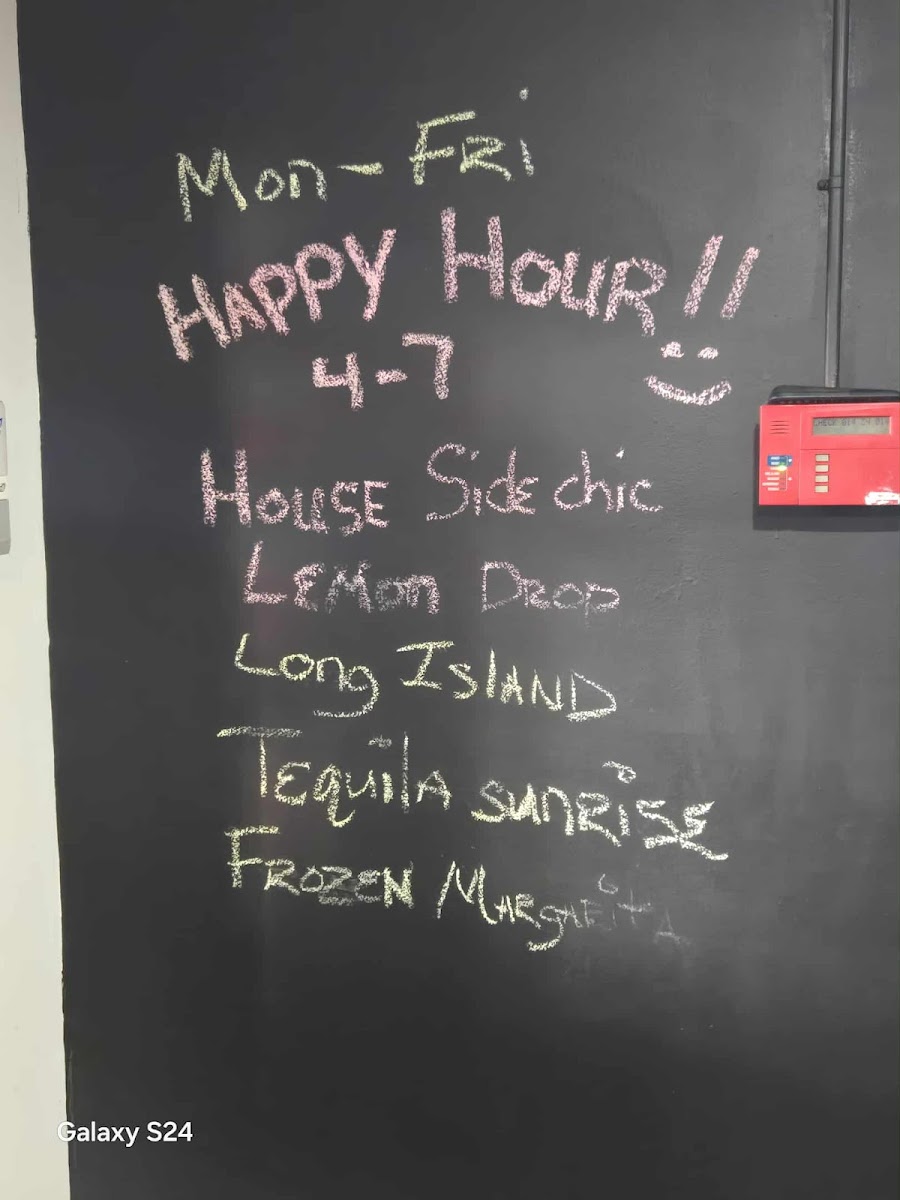 Mon - Fri
HAPPY HOUR!!
4-7
HOUSE Side chic
LEMON DROP
Long IslAND
TEquilA sunRisE
FROZEN MARgARitA
Galaxy S24